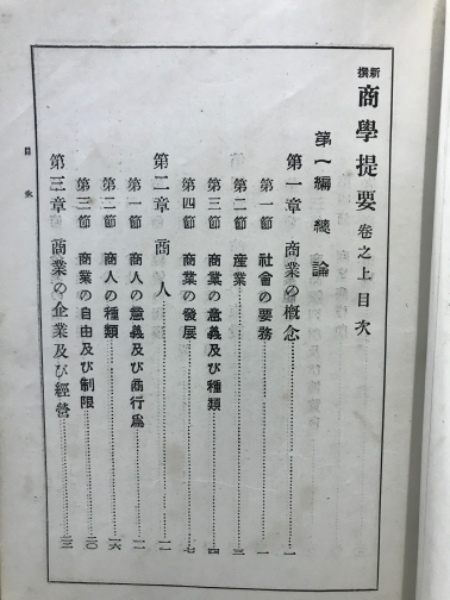 新撰 商學提要 卷之上目次
第一編 總論
第一章 商業の概念 一
第一節 社會の要務 一
第二節 産業 三
第三節 商業の意義及び種類 四
第四節 商業の發展 七
第二章 商人 一一
第一節 商人の意義及び商行爲 一一
第二節 商人の種類 一六
第三節 商業の自由及び制限 二〇
第三章 商業の企業及び經營 二三
目次